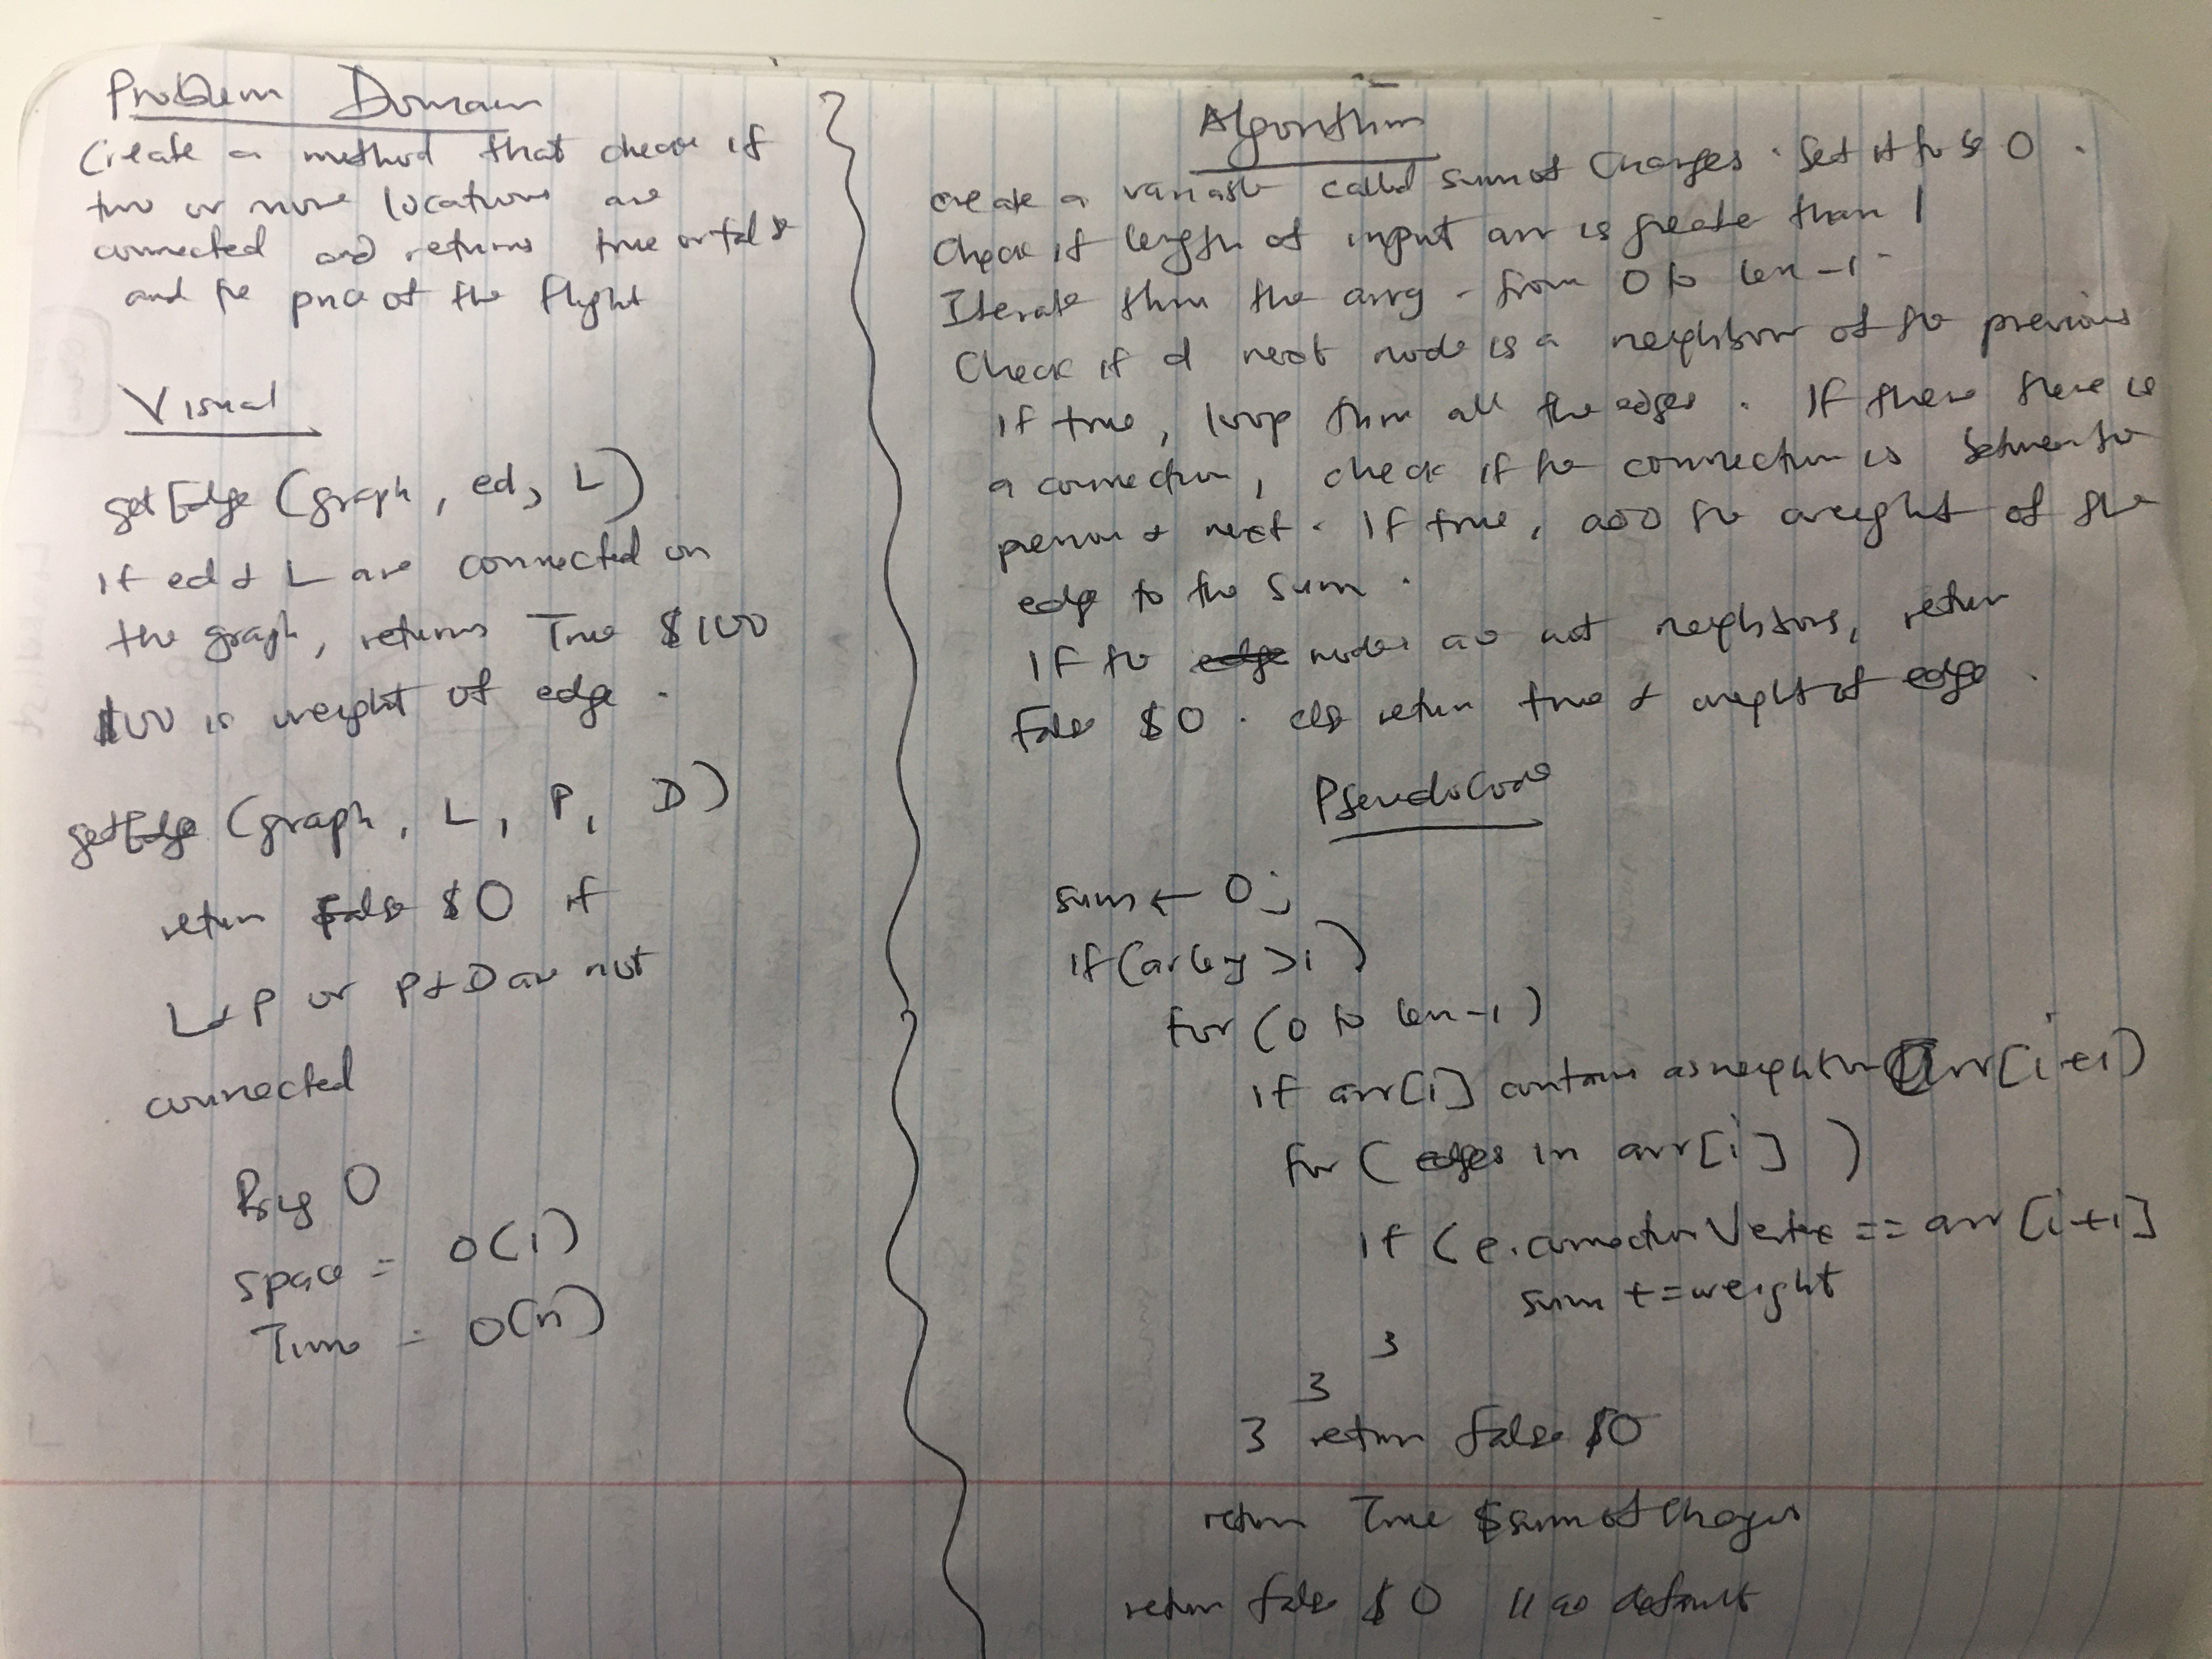 Problem Domain
Create a method that check if
two or more locations are
connected and returns true or false
and the price of the flight
Visual
getEdge (graph, ed, L)
If ed & L are connected in
the graph, returns True $100
$100 is weight of edge.
getEdge (graph, L, P, D)
return false $0 if
L & P or P & D are not
connected
Big O
space = O(1)
Time = O(n)
Algorithm
create a variable called sum of charges. Set it to $0.
Check if length of input arr is greater than 1
Iterate thru the array. from 0 to len-1.
Check if d next node is a neighbor of the previous
If true, loop thru all the edges. If there there is
a connection, check if the connection is between the
previous & next. If true, add the weight of the
edge to the sum.
If the nodes are not neighbors, return
False $0. else return true & weight of edge.
Pseudocode
sum ← 0;
if (arr.leg > 1)
for (0 to len-1)
If arr[i] contains as neighbor (arr[i+1)
for (edges in arr[i])
if (e.connectionVertex == arr[i+1]
sum += weight
}
}
} return false $0
return True $sum of Charges
return false $0 // as default